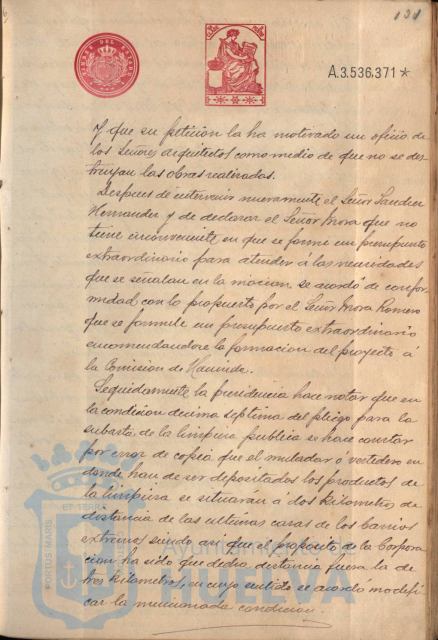 131
A.3.536.371*
Y que su peticion la ha motivado un oficio de
los Señores arquitectos como medio de que no se des-
truyan las obras realizadas.
Despues de intervenir nuevamente el Señor Sanchez
Hernandez y de declarar el Señor Mora que no
tiene inconveniente en que se forme un presupuesto
extraordinario para atender á las necesidades
que se señalan en la mocion, se acordó de confor-
midad con lo propuesto por el Señor Mora Romero
que se formule un presupuesto extraordinario
encomendandose la formacion del proyecto á
la Comision de Hacienda.
Seguidamente la presidencia hace notar que en
la condicion decima septima del pliego para la
subasta de la limpieza publica se hace constar
por error de copia que el muladar ó vertedero en
donde han de ser depositados los productos de
la limpieza se situarán á dos kilometros de
distancia de las ultimas casas de los barrios
extremos siendo asi que el proposito de la Corpora-
cion ha sido que dicha distancia fuera la de
tres kilometros, en cuyo sentido se acordó modifi-
car la mencionada condicion.
PORTUS MARIS
ET TERRÆ
Ayuntamiento de
HUELVA